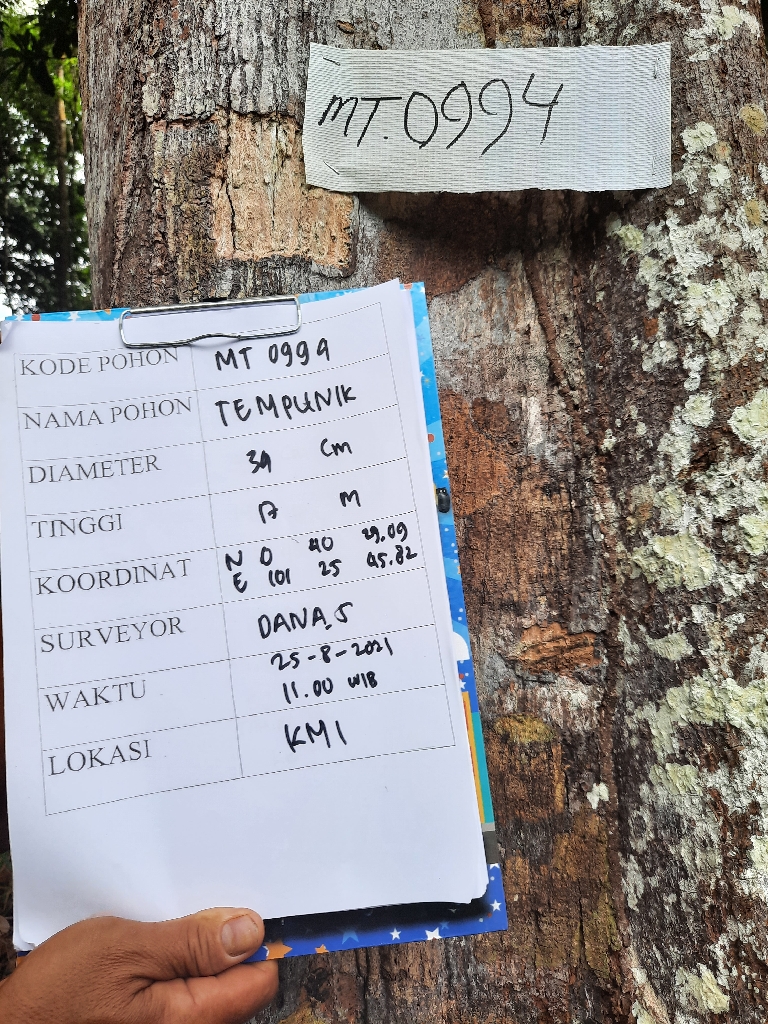 MT.0994
KODE POHON MT 0994
NAMA POHON TEMPUNIK
DIAMETER 34 Cm
TINGGI 17 M
KOORDINAT N 0 40 29.09
E 101 25 45.82
SURVEYOR DANA.S
WAKTU 25-8-2021
11.00 WIB
LOKASI KM 1